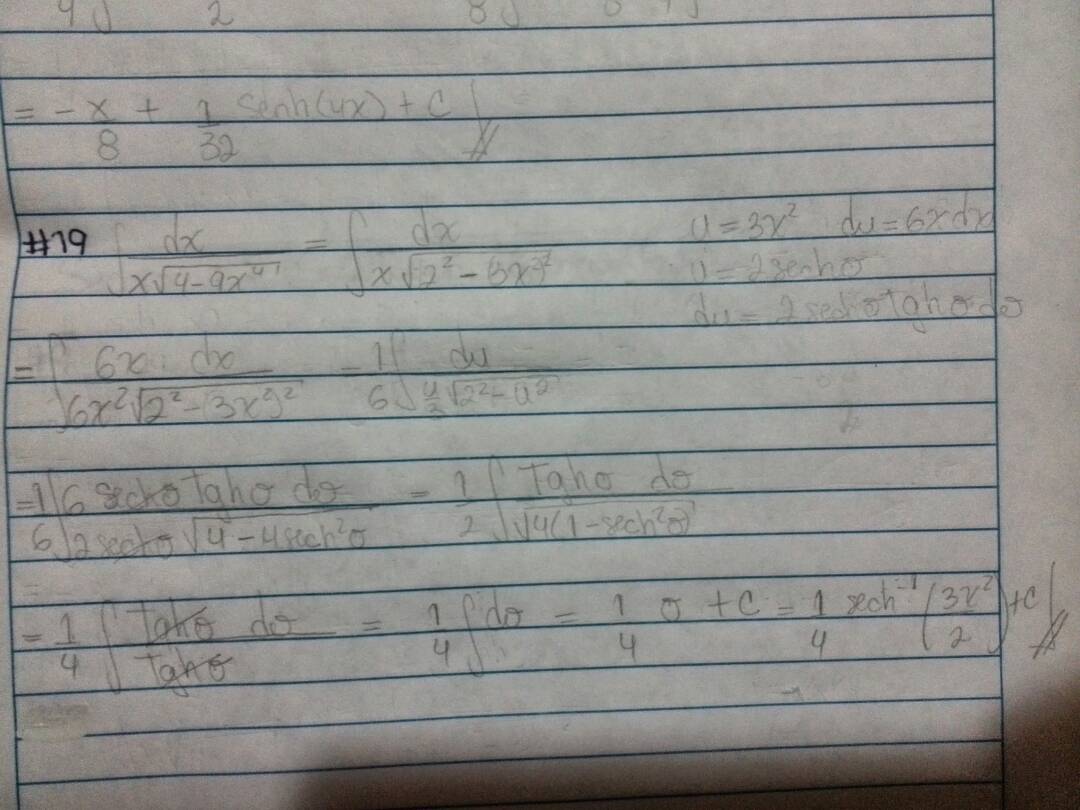 = -x/8 + 1/32 senh(4x) + C
#19 ∫ dx / x√(4-9x⁴) = ∫ dx / x√(2²-(3x²)²) u = 3x² du = 6x dx
u = 2 sechσ
du = 2 sechσ Tghσ dσ
= ∫ 6x dx / 6x²√(2²-(3x²)²) = 1/6 ∫ du / (u/3)√(2²-u²)
= 1/6 ∫ 6 sechσ Tghσ dσ / 2 sechσ √(4-4sech²σ) = 1/2 ∫ Tghσ dσ / √(4(1-sech²σ))
= 1/4 ∫ Tghσ dσ / Tghσ = 1/4 ∫ dσ = 1/4 σ + C = 1/4 sech⁻¹ (3x²/2) + C